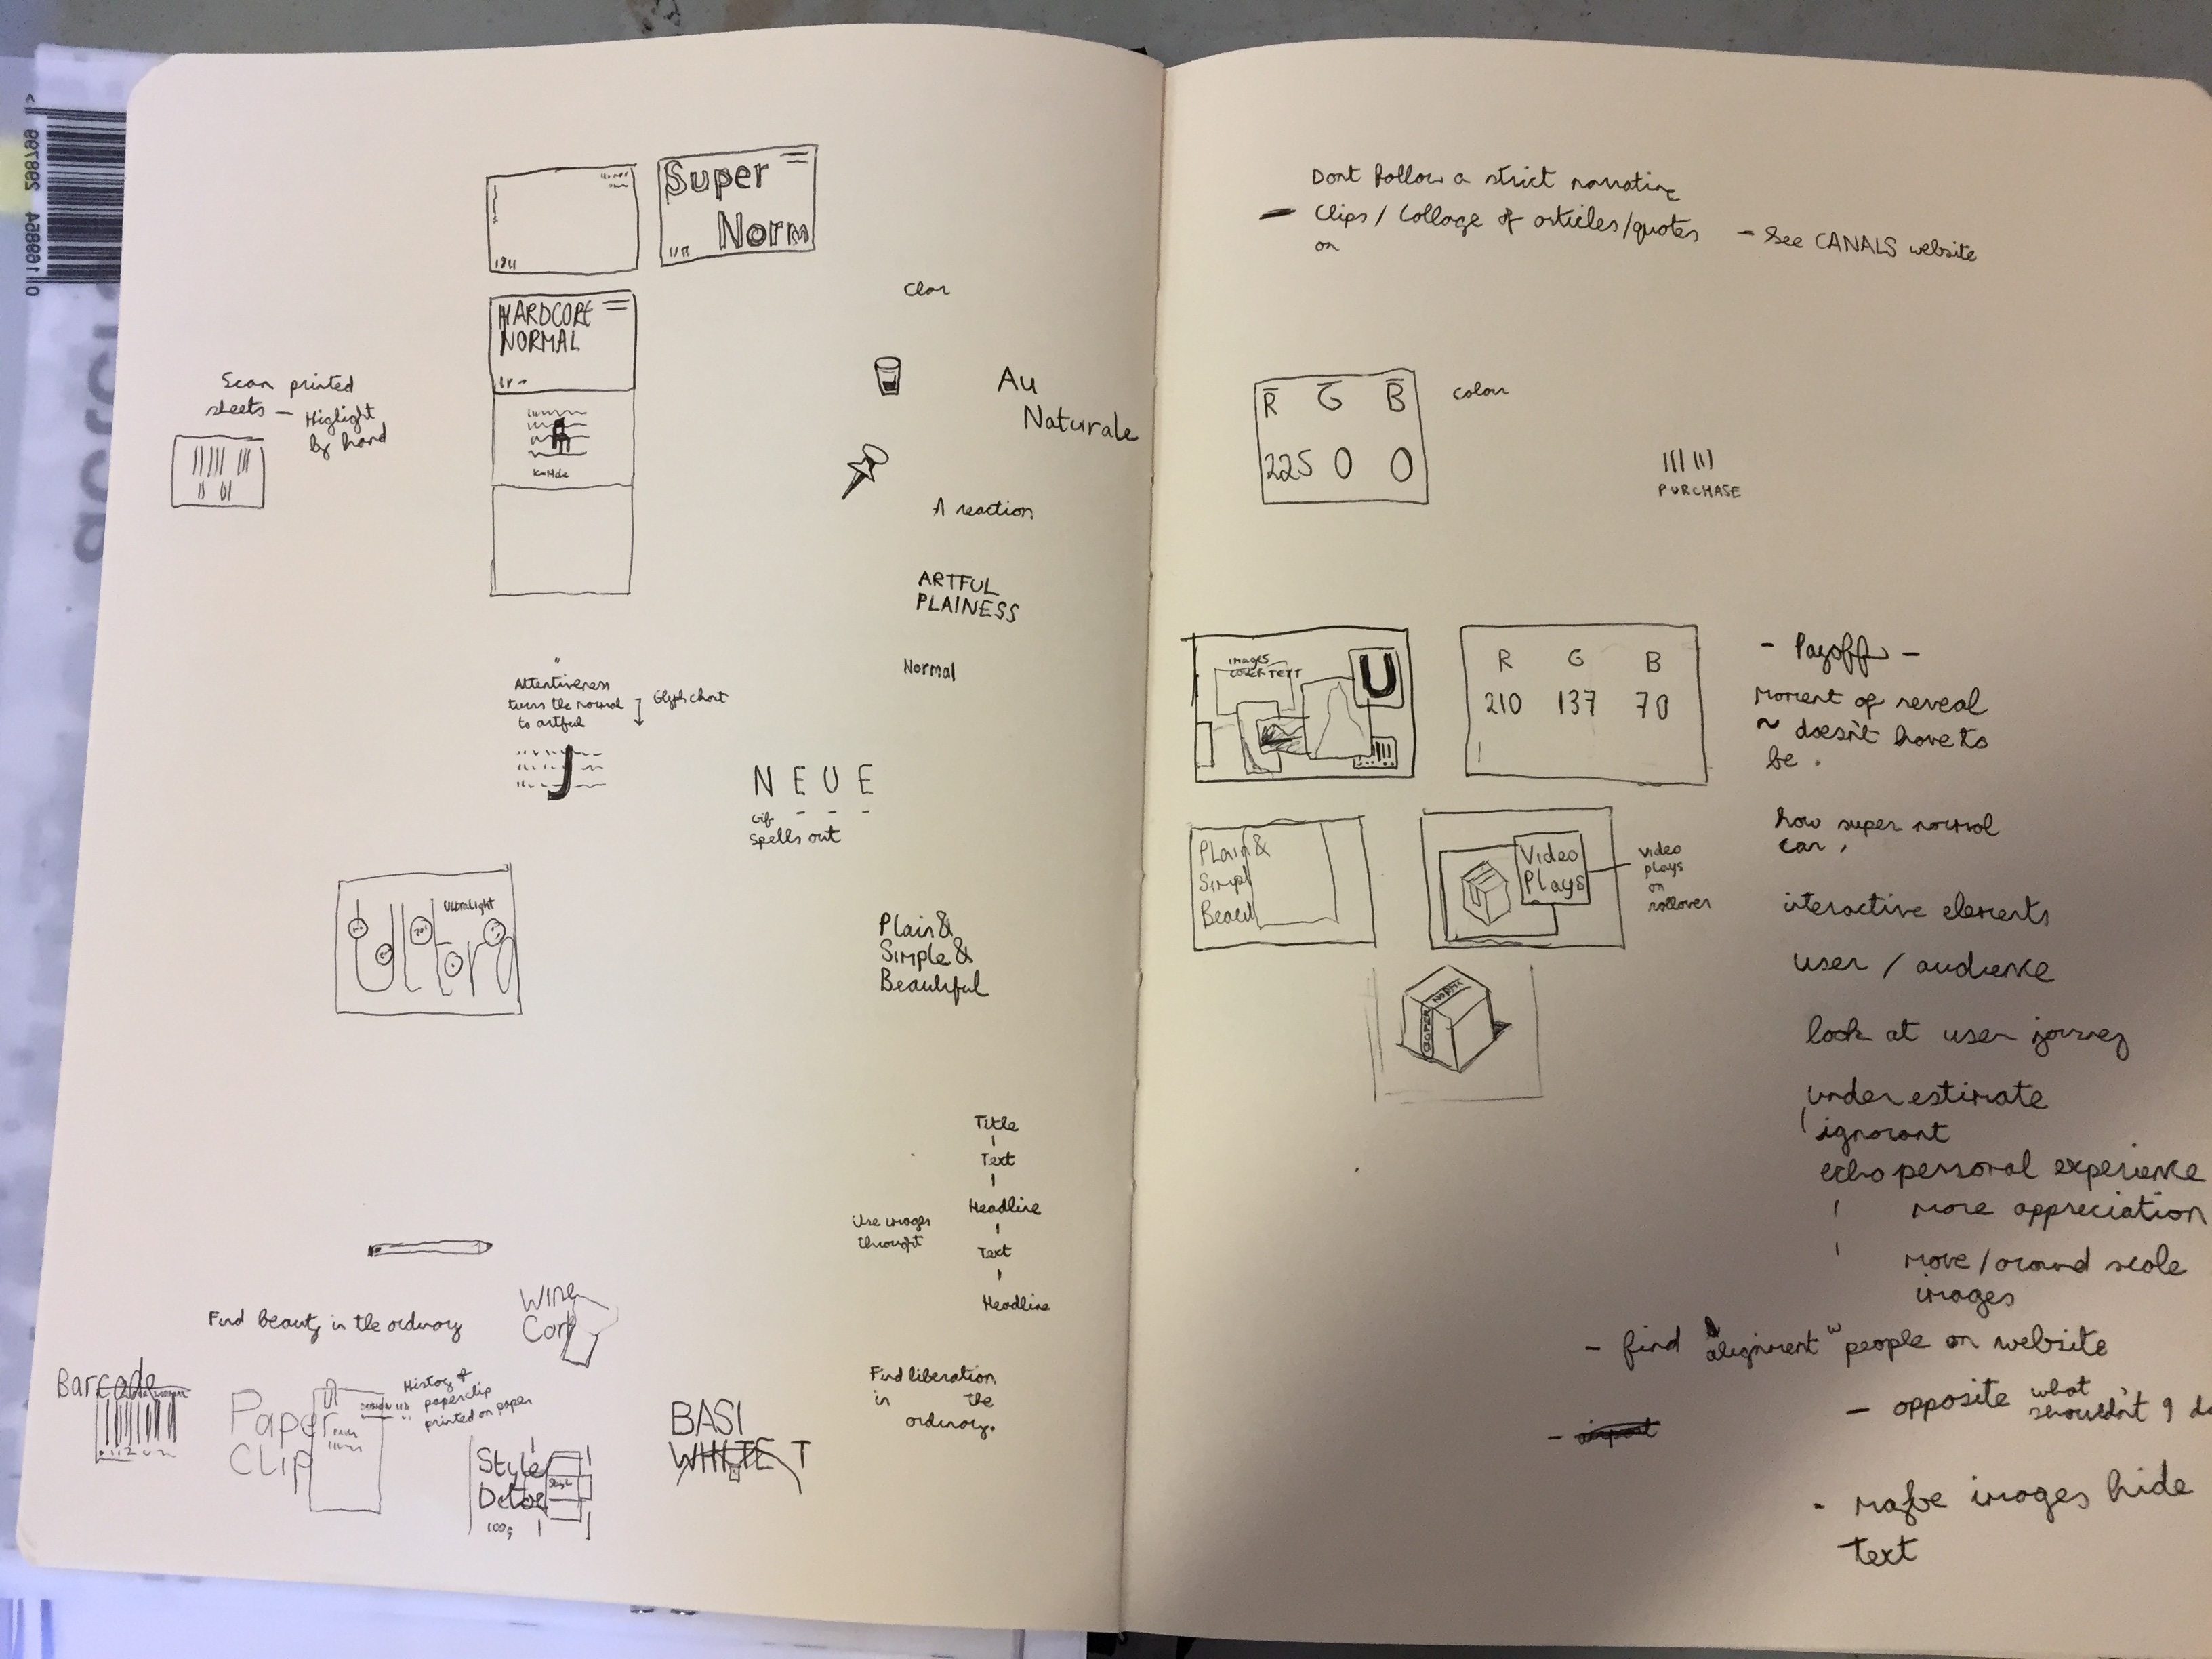 Super
Norm
HARDCORE
NORMAL
Scan printed
sheets – Higlight
by hand
Au
Naturale
A reaction
ARTFUL
PLAINESS
Normal
Attentiveness
turns the normal
to artful
Glyph chart
J
N E U E
Gif
Spells out
UltraLight
Ultra
Plain &
Simple &
Beautiful
Title
Text
Headline
Text
Headline
Use images
throught
Find beauty in the ordinary
Wine
Cork
Barcode
Paper
Clip
History of
paperclip
printed on paper
Style
Detox
100g
BASI
WHITE T
Find liberation
in the
ordinary.
Dont follow a strict narrative
– Clips / Collage of articles/quotes – See CANALS website
on
R G B
225 0 0
colour
PURCHASE
images
cover TEXT
U
R G B
210 137 70
- Payoff -
Moment of reveal
~ doesn't have to
be.
Plain &
Simpl
Beaut
Video
Plays
video
plays
on
rollover
how super normal
can,
interactive elements
user / audience
look at user journey
SUPER
NORMAL
underestimate
ignorant
echo personal experience
more appreciation
move/around scale
images
- find alignment w people on website
- opposite what
shouldn't I do
- mafbe images hide
text
0 169864 298799